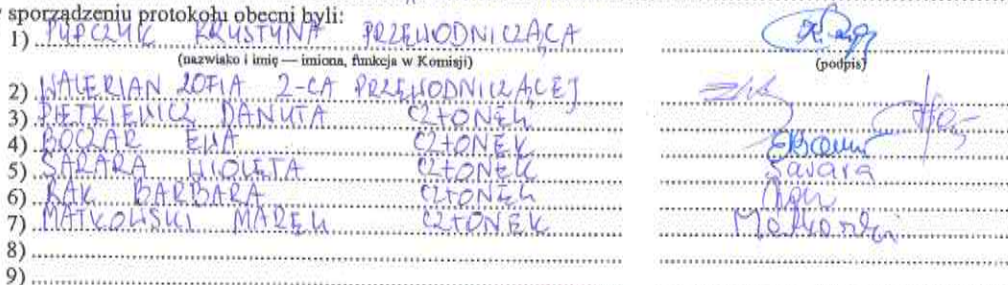 sporządzeniu protokołu obecni byli:
1) PYPCZUK KRYSTYNA PRZEWODNICZĄCA
(nazwisko i imię — imiona, funkcja w Komisji) (podpis)
2) WALERIAN ZOFIA Z-CA PRZEWODNICZĄCEJ
3) PIETKIEWICZ DANUTA CZŁONEK
4) BOCZAR EWA CZŁONEK
5) SARARA WIOLETA CZŁONEK Sarara
6) RAK BARBARA CZŁONEK
7) MATKOWSKI MAREK CZŁONEK Matkowski
8)
9)